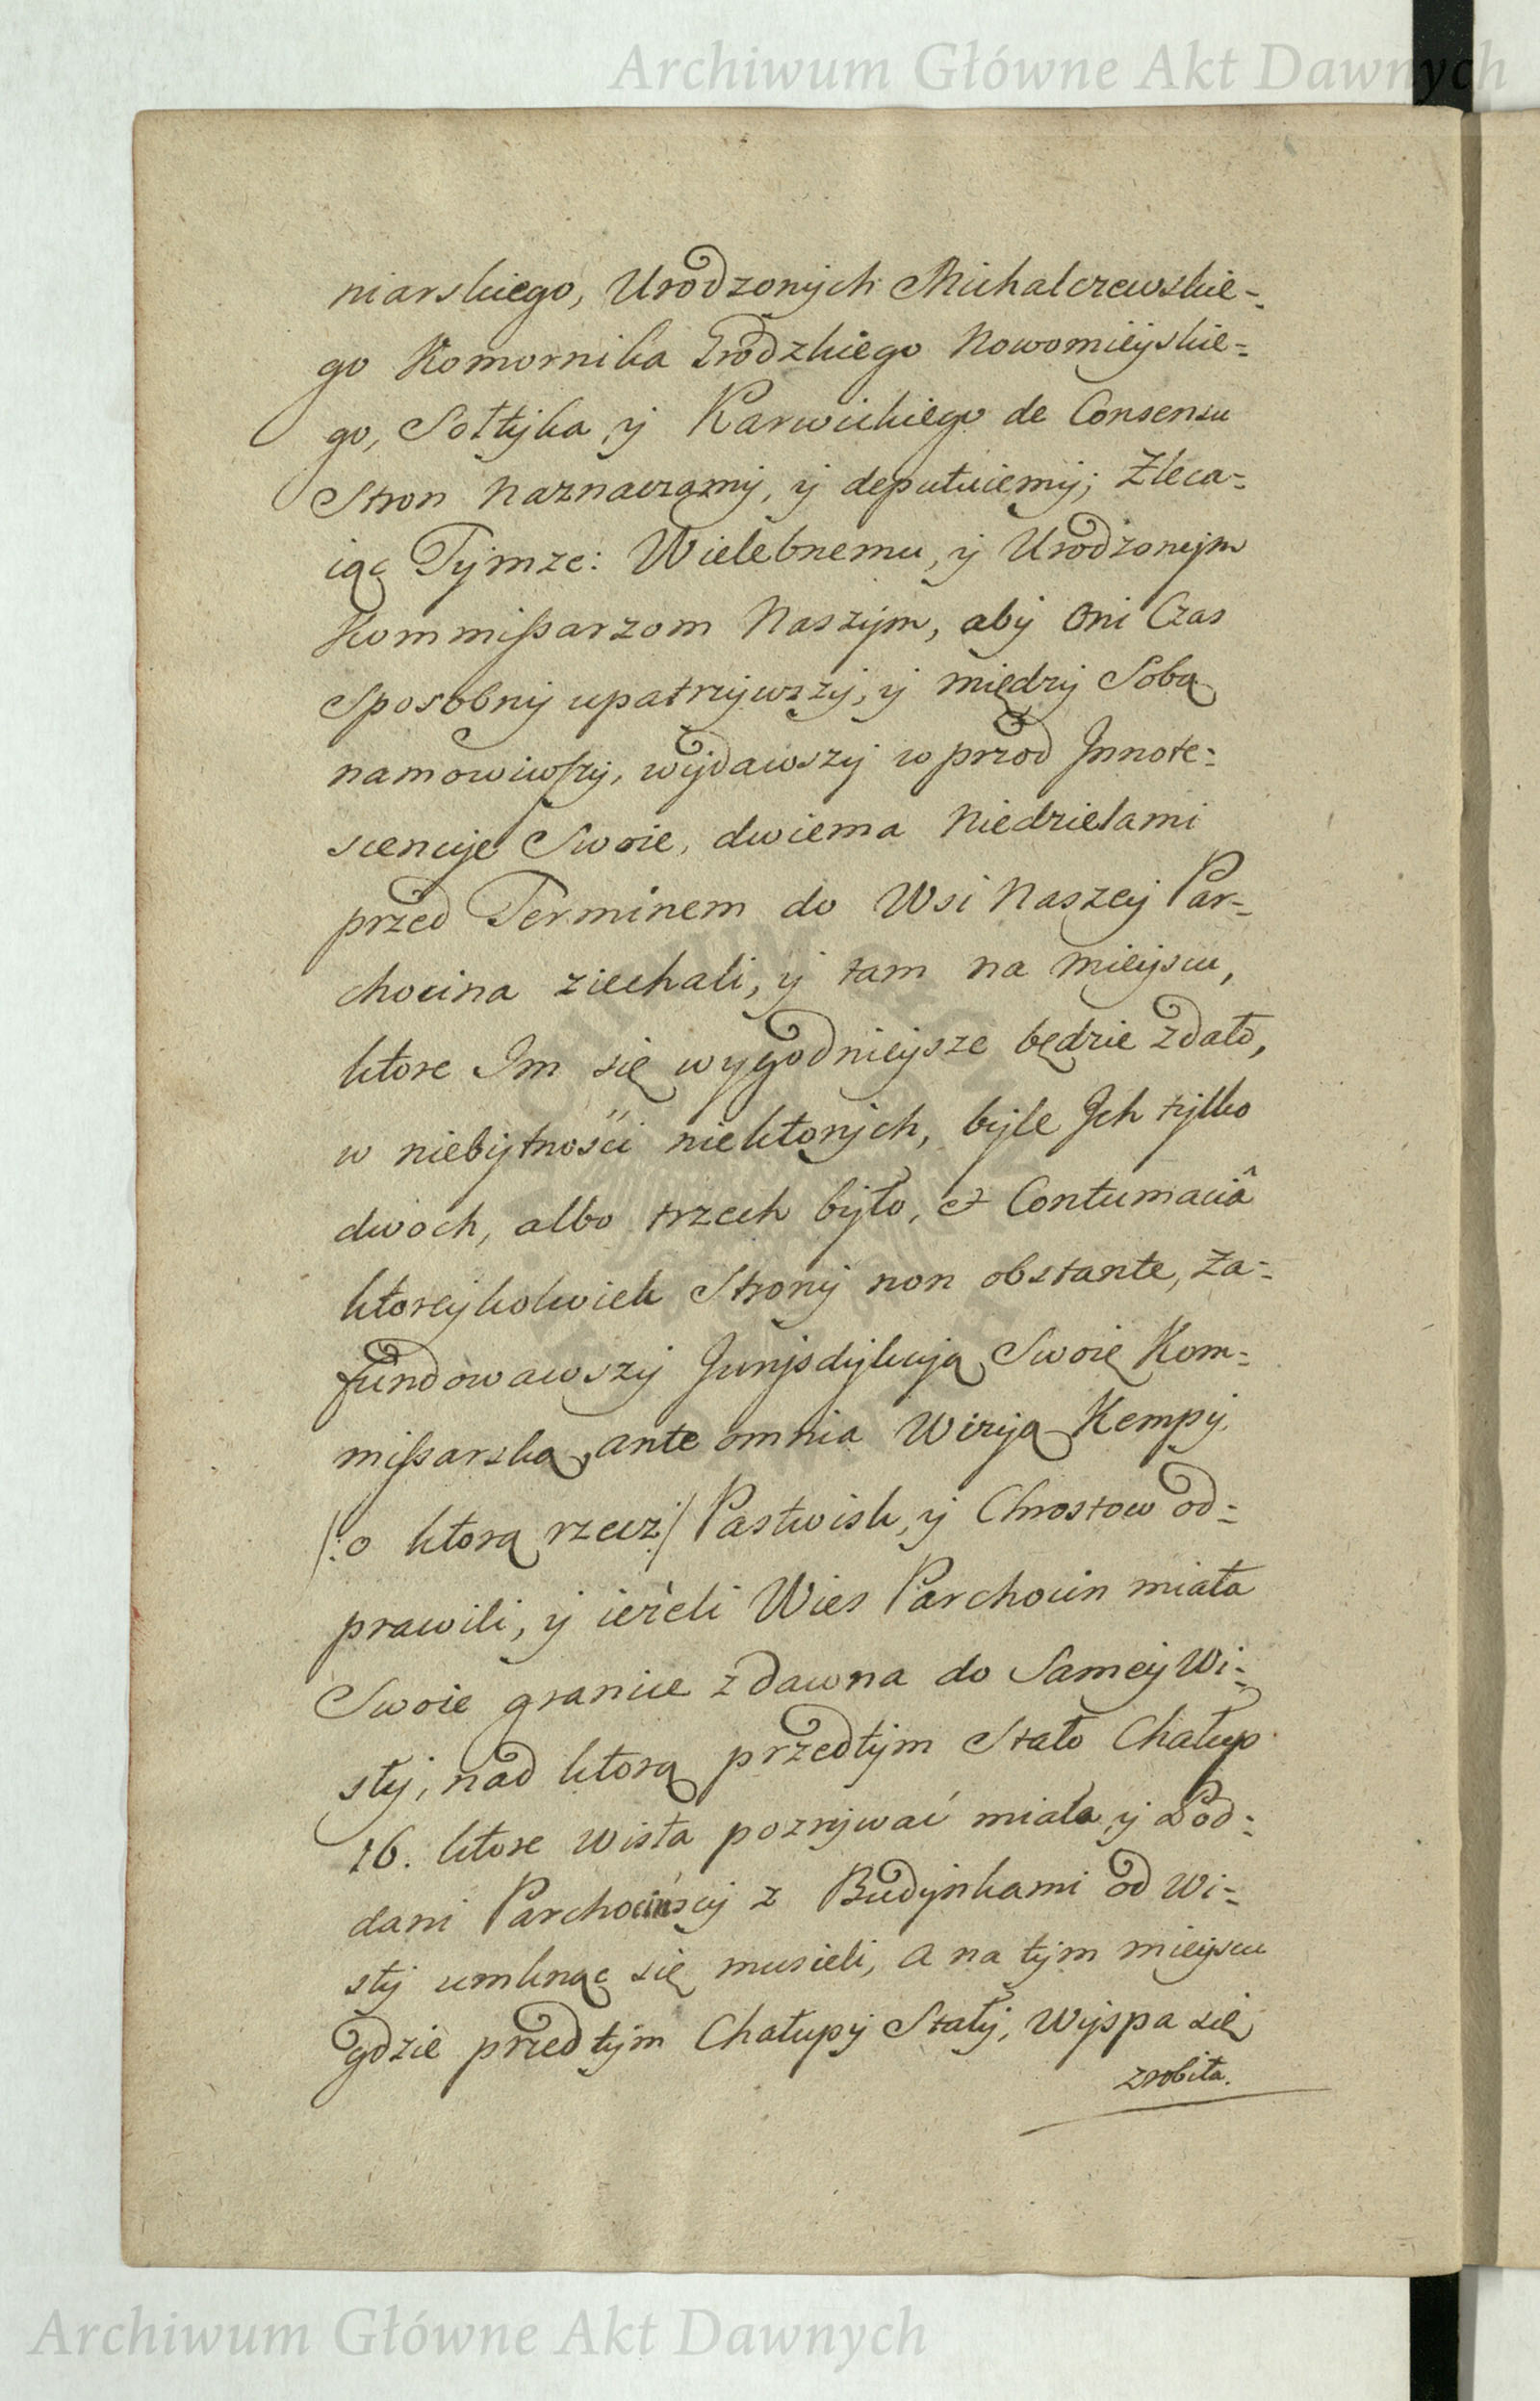 Archiwum Główne Akt Dawnych
niarskiego, Urodzonych Michalczewskie=
go Komornika Grodzkiego Nowomieyskie=
go, Sołtyka y Karwickiego de Consensu
Stron naznaczamy, y deputuiemy; Zleca=
iąc Tymże: Wielebnemu, y Urodzonym
Kommissarzom Naszym, aby oni Czas
Sposobny upatrzywszy, y między Sobą
namowiwszy, wydawszy w przod Innote=
scencye Swoie, dwiema Niedzielami
przed Terminem do Wsi Naszey Par=
chocina ziechali, y tam na mieyscu,
ktore Im się wygodnieysze będzie zdało,
w niebytności niektorych, byle Ich tylko
dwoch, albo trzech było, et Contumaciâ
ktoreykolwiek Strony non obstante, Za=
fundowawszy Jurysdykcyą Swoię Kom=
missarską, ante omnia Wizyą Kempy.
/:o ktorą rzecz:/ Pastwisk, y Chrostow od=
prawili, y ieżeli Wies Parchocin miała
Swoie granice z dawna do Samey Wi=
sły, nad ktorą przedtym Stało Chałup
16. ktore Wisła pozrywać miała y Pod=
dani Parchocinscy z Budynkami od Wi=
sły umknąc się musieli, a na tym mieyscu
gdzie przedtym Chałupy Stały, Wyspa się
zrobiła.
Archiwum Główne Akt Dawnych